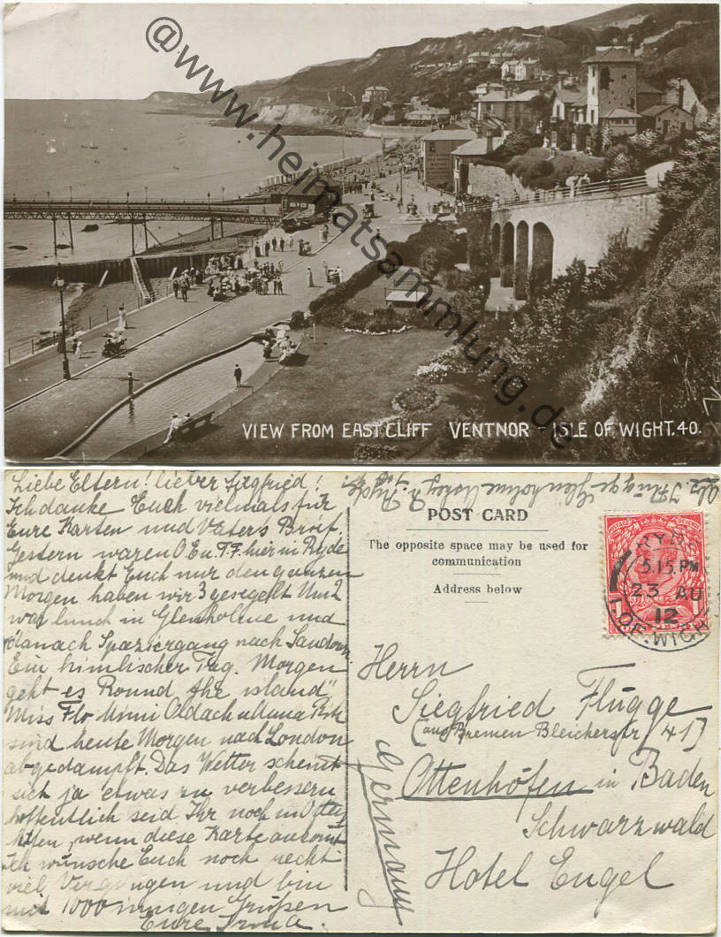 @www.heimatsammlung.de
VIEW FROM EAST CLIFF VENTNOR - ISLE OF WIGHT. 40.
Liebe Eltern! lieber Siegfried!
Ich danke Euch vielmals für
Eure Karten und Vaters Brief
Gestern waren O E u. F. F. hier in Ryde
und denkt Euch nur den ganzen
Morgen haben wir 3 gesegelt Um 2
war lunch in Glenholme und
danach Spaziergang nach Sandown
Ein himlischer Tag. Morgen
geht es "Round the island"
Miss Flo Mimi Oldach u Mama
sind heute Morgen nach London
abgedampft. Das Wetter scheint
sich ja etwas zu verbessern
hoffentlich seid Ihr noch in Otten
höfen, wenn diese Karte ankomt
ich wünsche Euch noch recht
viel Vergnügen und bin
mit 1000 innigen Grüßen
Eure Irma.
Glenholme Ryde
POST CARD
The opposite space may be used for
communication
Address below
RYDE
5.15 PM
23 AU
12
I. OF WIGHT
Herrn
Siegfried Flügge
(aus Bremen Bleicherstr 41)
Ottenhöfen in Baden
Schwarzwald
Hotel Engel
Germany